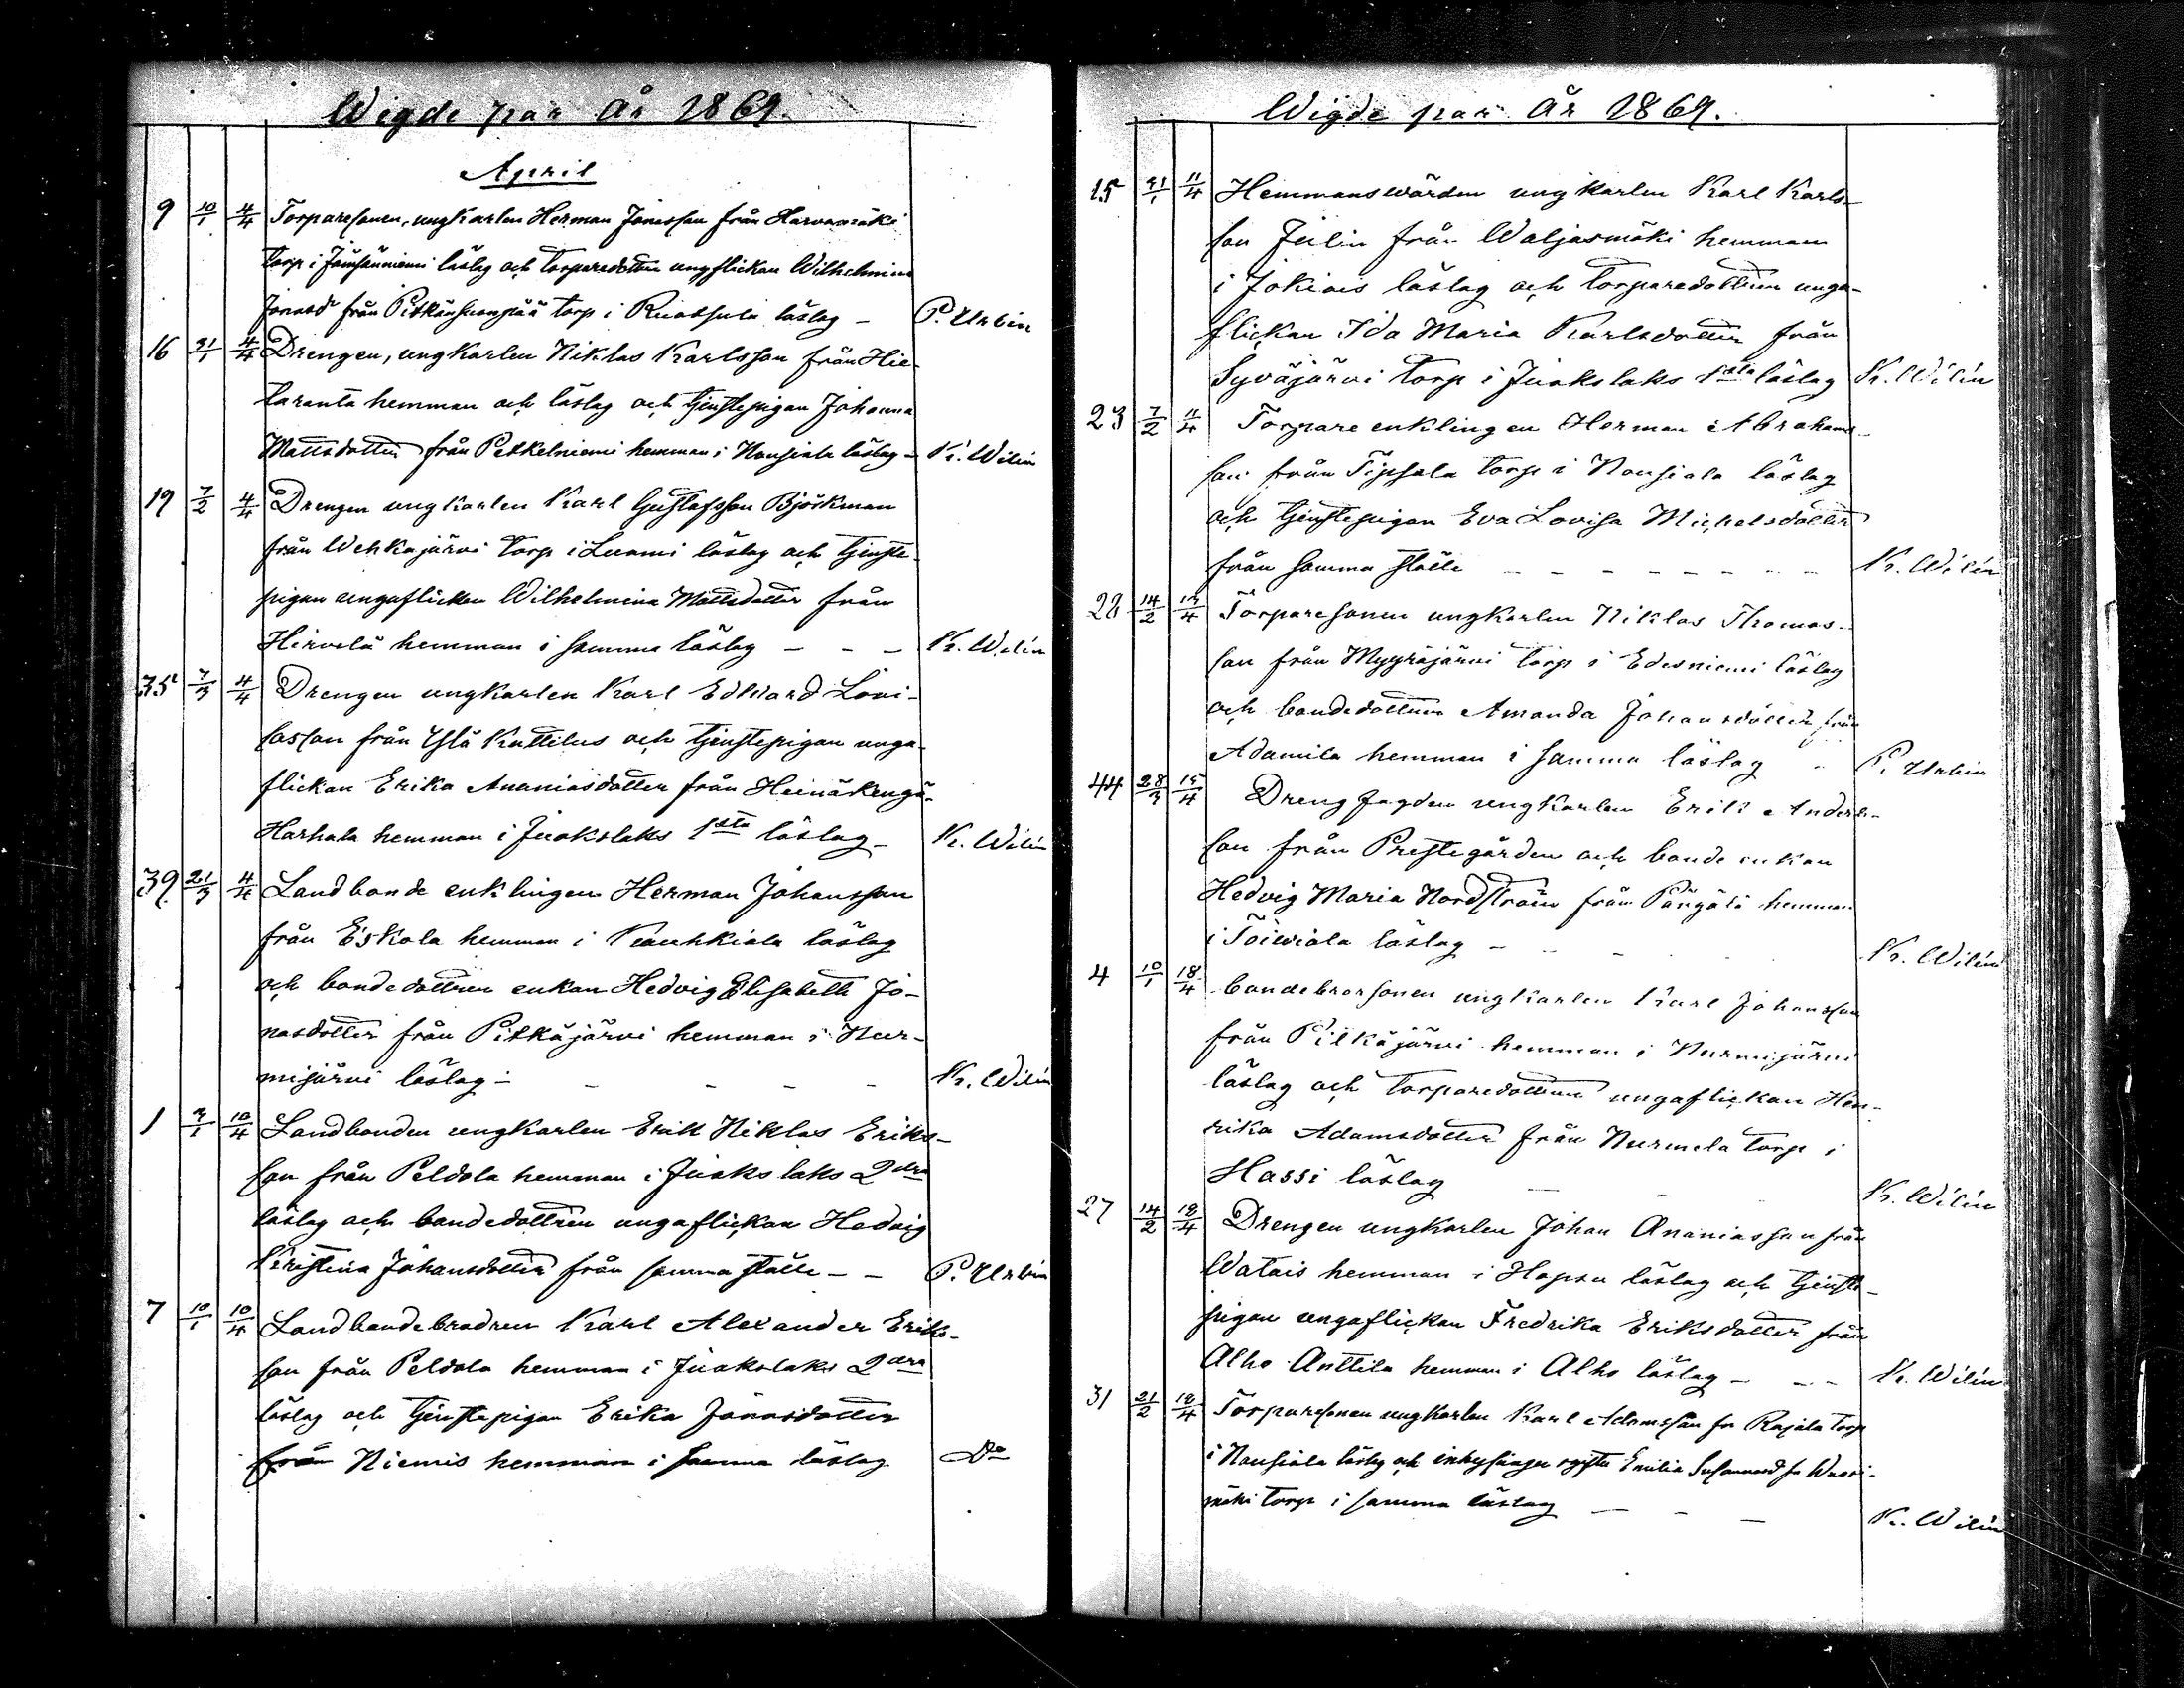 Wigde par År 1869.
April
9 10/1 4/4 Torparesonen, ungkarlen Herman Jonasson från Harvamäki
torp i Jämsänniemi läslag och torparedottren ungflickan Wilhelmina
Jonasd från Pitkänsuonpää torp i Ruotsula läslag - P. Urbin
16 31/1 4/4 Drengen, ungkarlen Niklas Karlsson från Hie-
taranta hemman och läslag och tjenstepigan Johanna
Mattsdotter från Petkelniemi hemman i Nousiala läslag - Kr. Wilén
19 7/2 4/4 Drengen ungkarlen Karl Gustafsson Björkman
från Wehkajärvi torp i Luomi läslag och tjenste-
pigan ungaflickan Wilhelmina Mattsdotter från
Hirvelä hemman i samma läslag - - - Kr. Wilén
35 7/3 4/4 Drengen ungkarlen Karl Edward Lovi-
sasson från Yliä Knuttilus och tjenstepigan unga-
flickan Erika Ananiasdotter från Heinäkengä-
Harhala hemman i Juokslaks 1sta läslag - Kr. Wilén
39 21/3 4/4 Landbonde enklingen Herman Johansson
från Eskola hemman i Kauhkiala läslag
och bondedottren enkan Hedvig Elisabeth Jo-
nasdotter från Pitkäjärvi hemman i Nur-
mijärvi läslag - - - - - Kr. Wilén
1 3/1 10/4 Landbonden ungkarlen Erik Niklas Eriks-
son från Peldola hemman i Juokslaks 2dra
läslag och bondedottren ungaflickan Hedvig
Kristina Johansdotter från samma ställe - - P. Urbin
7 10/1 10/4 Landbondebrodren Karl Alexander Eriks-
son från Peldola hemman i Juokslaks 2dra
läslag och tjenstepigan Erika Jonasdotter
från Niemis hemman i samma läslag Do
Wigde par År 1869.
15 31/1 11/4 Hemmanswärden ungkarlen Karl Karls-
son Julin från Waljasmäki hemman
i Jokiois läslag och torparedottren unga-
flickan Ida Maria Karlsdotter från
Syväjärvi torp i Juokslaks 1sta läslag Kr. Wilén
23 7/2 11/4 Torpare enklingen Herman Abrahams-
son från Tipsala torp i Nousiala läslag
och tjenstepigan Eva Lovisa Michelsdotter
från samma ställe - - - - - - - - Kr. Wilén
28 14/2 15/4 Torparesonen ungkarlen Niklas Thomas-
son från Myyräjärvi torp i Edesniemi läslag
och bondedottren Amanda Johansdotter från
Adamila hemman i samma läslag - P. Urbin
44 28/3 15/4 Drengfogden ungkarlen Erik Anders-
son från Prestegården och bonde enkan
Hedvig Maria Nordström från Pängälä hemman
i Toiwiala läslag - - - - Kr. Wilén
4 10/1 18/4 bondebrorsonen ungkarlen Karl Johansson
från Pitkäjärvi hemman i Nurmijärvi
läslag och torparedottren ungaflickan Hen-
rika Adamsdotter från Nurmela torp i
Hassi läslag - - - Kr. Wilén
27 14/2 18/4 Drengen ungkarlen Johan Ananiasson från
Watais hemman i Hopsu läslag och tjenste-
pigan ungaflickan Fredrika Eriksdotter från
Alho Anttila hemman i Alho läslag - - - Kr. Wilén
31 21/2 18/4 Torparesonen ungkarlen Karl Adamsson fr Rajala torp
i Nousiala läslag och inhysinge ogifta Emilia Susannasd fr Wuori-
mäki torp i samma läslag - - - Kr. Wilén